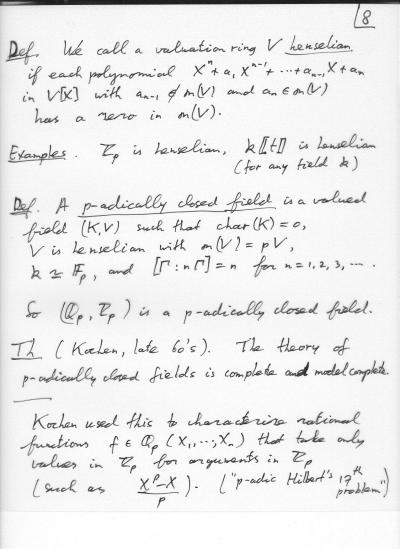 8
Def. We call a valuation ring V henselian
if each polynomial Xⁿ + a₁ Xⁿ⁻¹ + ··· + aₙ₋₁ X + aₙ
in V[X] with aₙ₋₁ ∉ m(V) and aₙ ∈ m(V)
has a zero in m(V).
Examples. ℤₚ is henselian, k⟦t⟧ is henselian
(for any field k)
Def. A p-adically closed field is a valued
field (K,V) such that char(K) = 0,
V is henselian with m(V) = pV,
k ≃ 𝔽ₚ, and [Γ : nΓ] = n for n = 1, 2, 3, ····
So (ℚₚ, ℤₚ) is a p-adically closed field.
Th. (Kochen, late 60's). The theory of
p-adically closed fields is complete and model complete.
Kochen used this to characterize rational
functions f ∈ ℚₚ(X₁, ···, Xₙ) that take only
values in ℤₚ for arguments in ℤₚ
(such as (Xᵖ - X)/p). ("p-adic Hilbert's 17th problem")